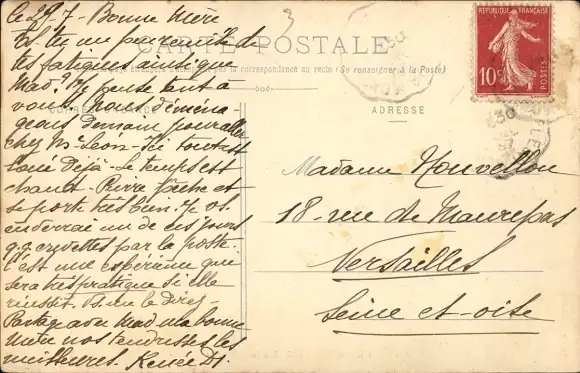 le 29-7- Bonne Mère
Es-tu un peu remise de
tes fatigues ainsi que
Mad? Je pense tant à
vous. Nous déména-
geons demain pour aller
chez Mr Léon-
loué déjà - le temps est
chaud - Pierre pêche et
se porte très bien. Je vs
enverrai un de ces jours
q.q. crevettes par la poste.
C'est une expérience que
sera très pratique si elle
réussit. Vs me le direz-
Partage avec Mad. ma bonne
Mère nos tendresses les
meilleures. Renée D.
3
CARTE POSTALE
la correspondance au recto (Se renseigner à la Poste)
CORRESPONDANCE
ADRESSE
RÉPUBLIQUE FRANÇAISE
10c
POSTES
Madame Nouvellon
18 - rue de Maurepas
Versailles
Seine-et-oise